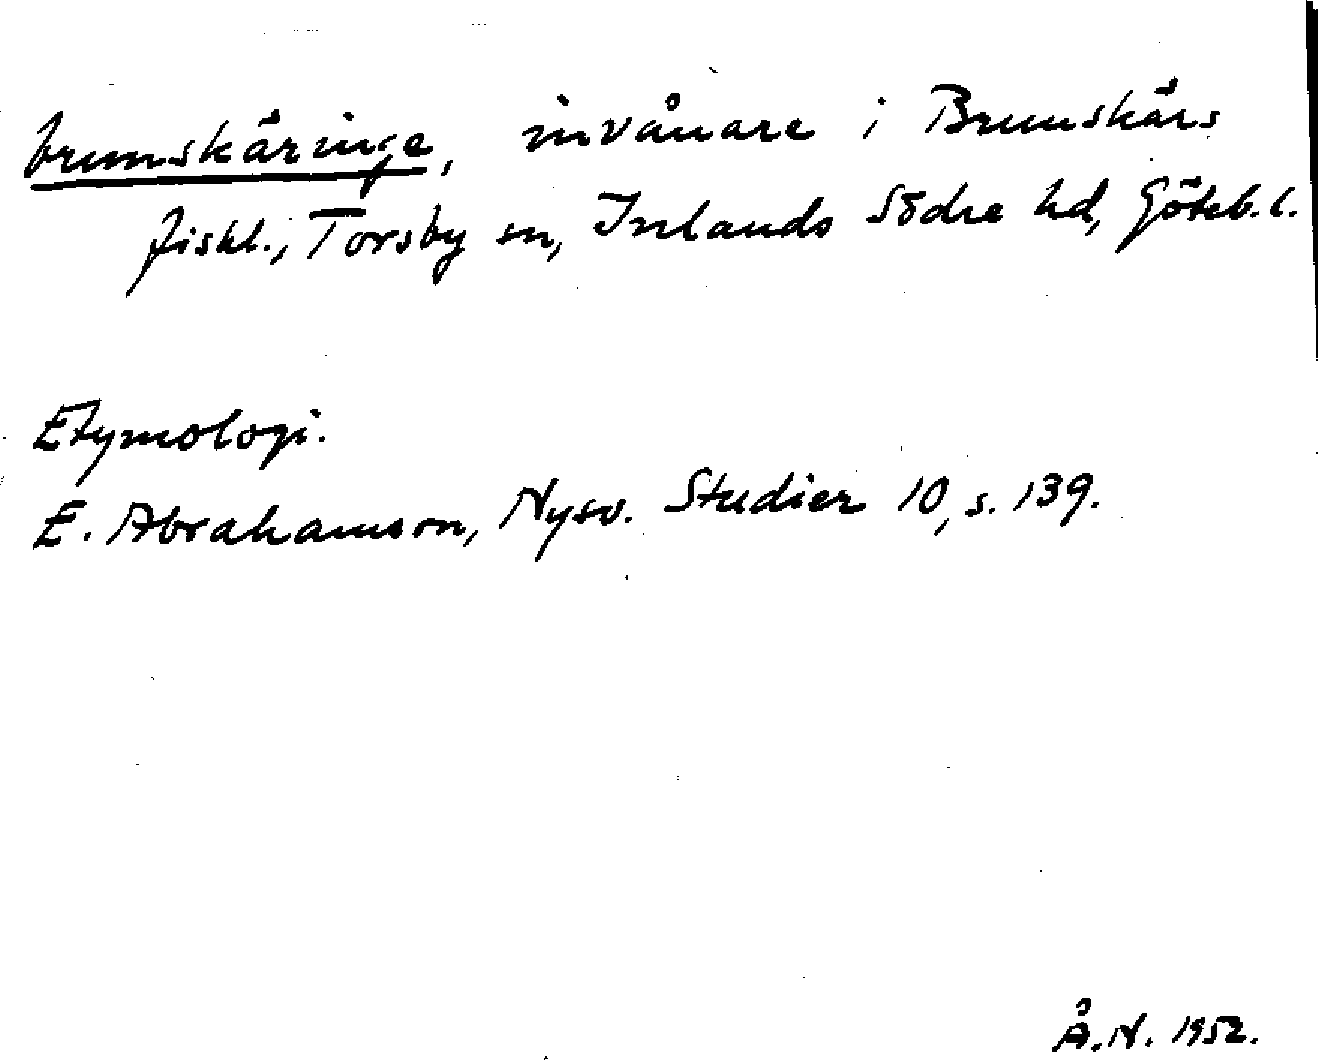 brunskäringe, invånare i Brunskärs
fiskl., Torsby sn, Inlands Södre hd, Göteb. l.
Etymologi.
E. Abrahamson, Nysv. Studier 10, s. 139.
Å.N. 1952.